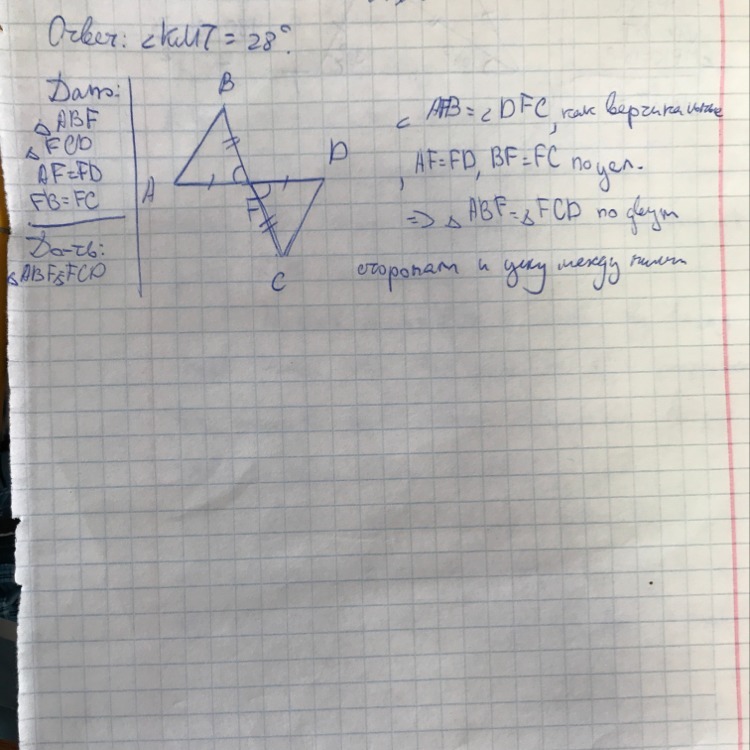 Ответ: ∠KMT = 28°.
Дано:
△ABF
△FCD
AF=FD
FB=FC
До-ть:
△ABF=△FCD
B
A
D
F
C
∠AFB = ∠DFC, как вертикальные
, AF=FD, BF=FC по усл.
=> △ABF=△FCD по двум
сторонам и углу между ними